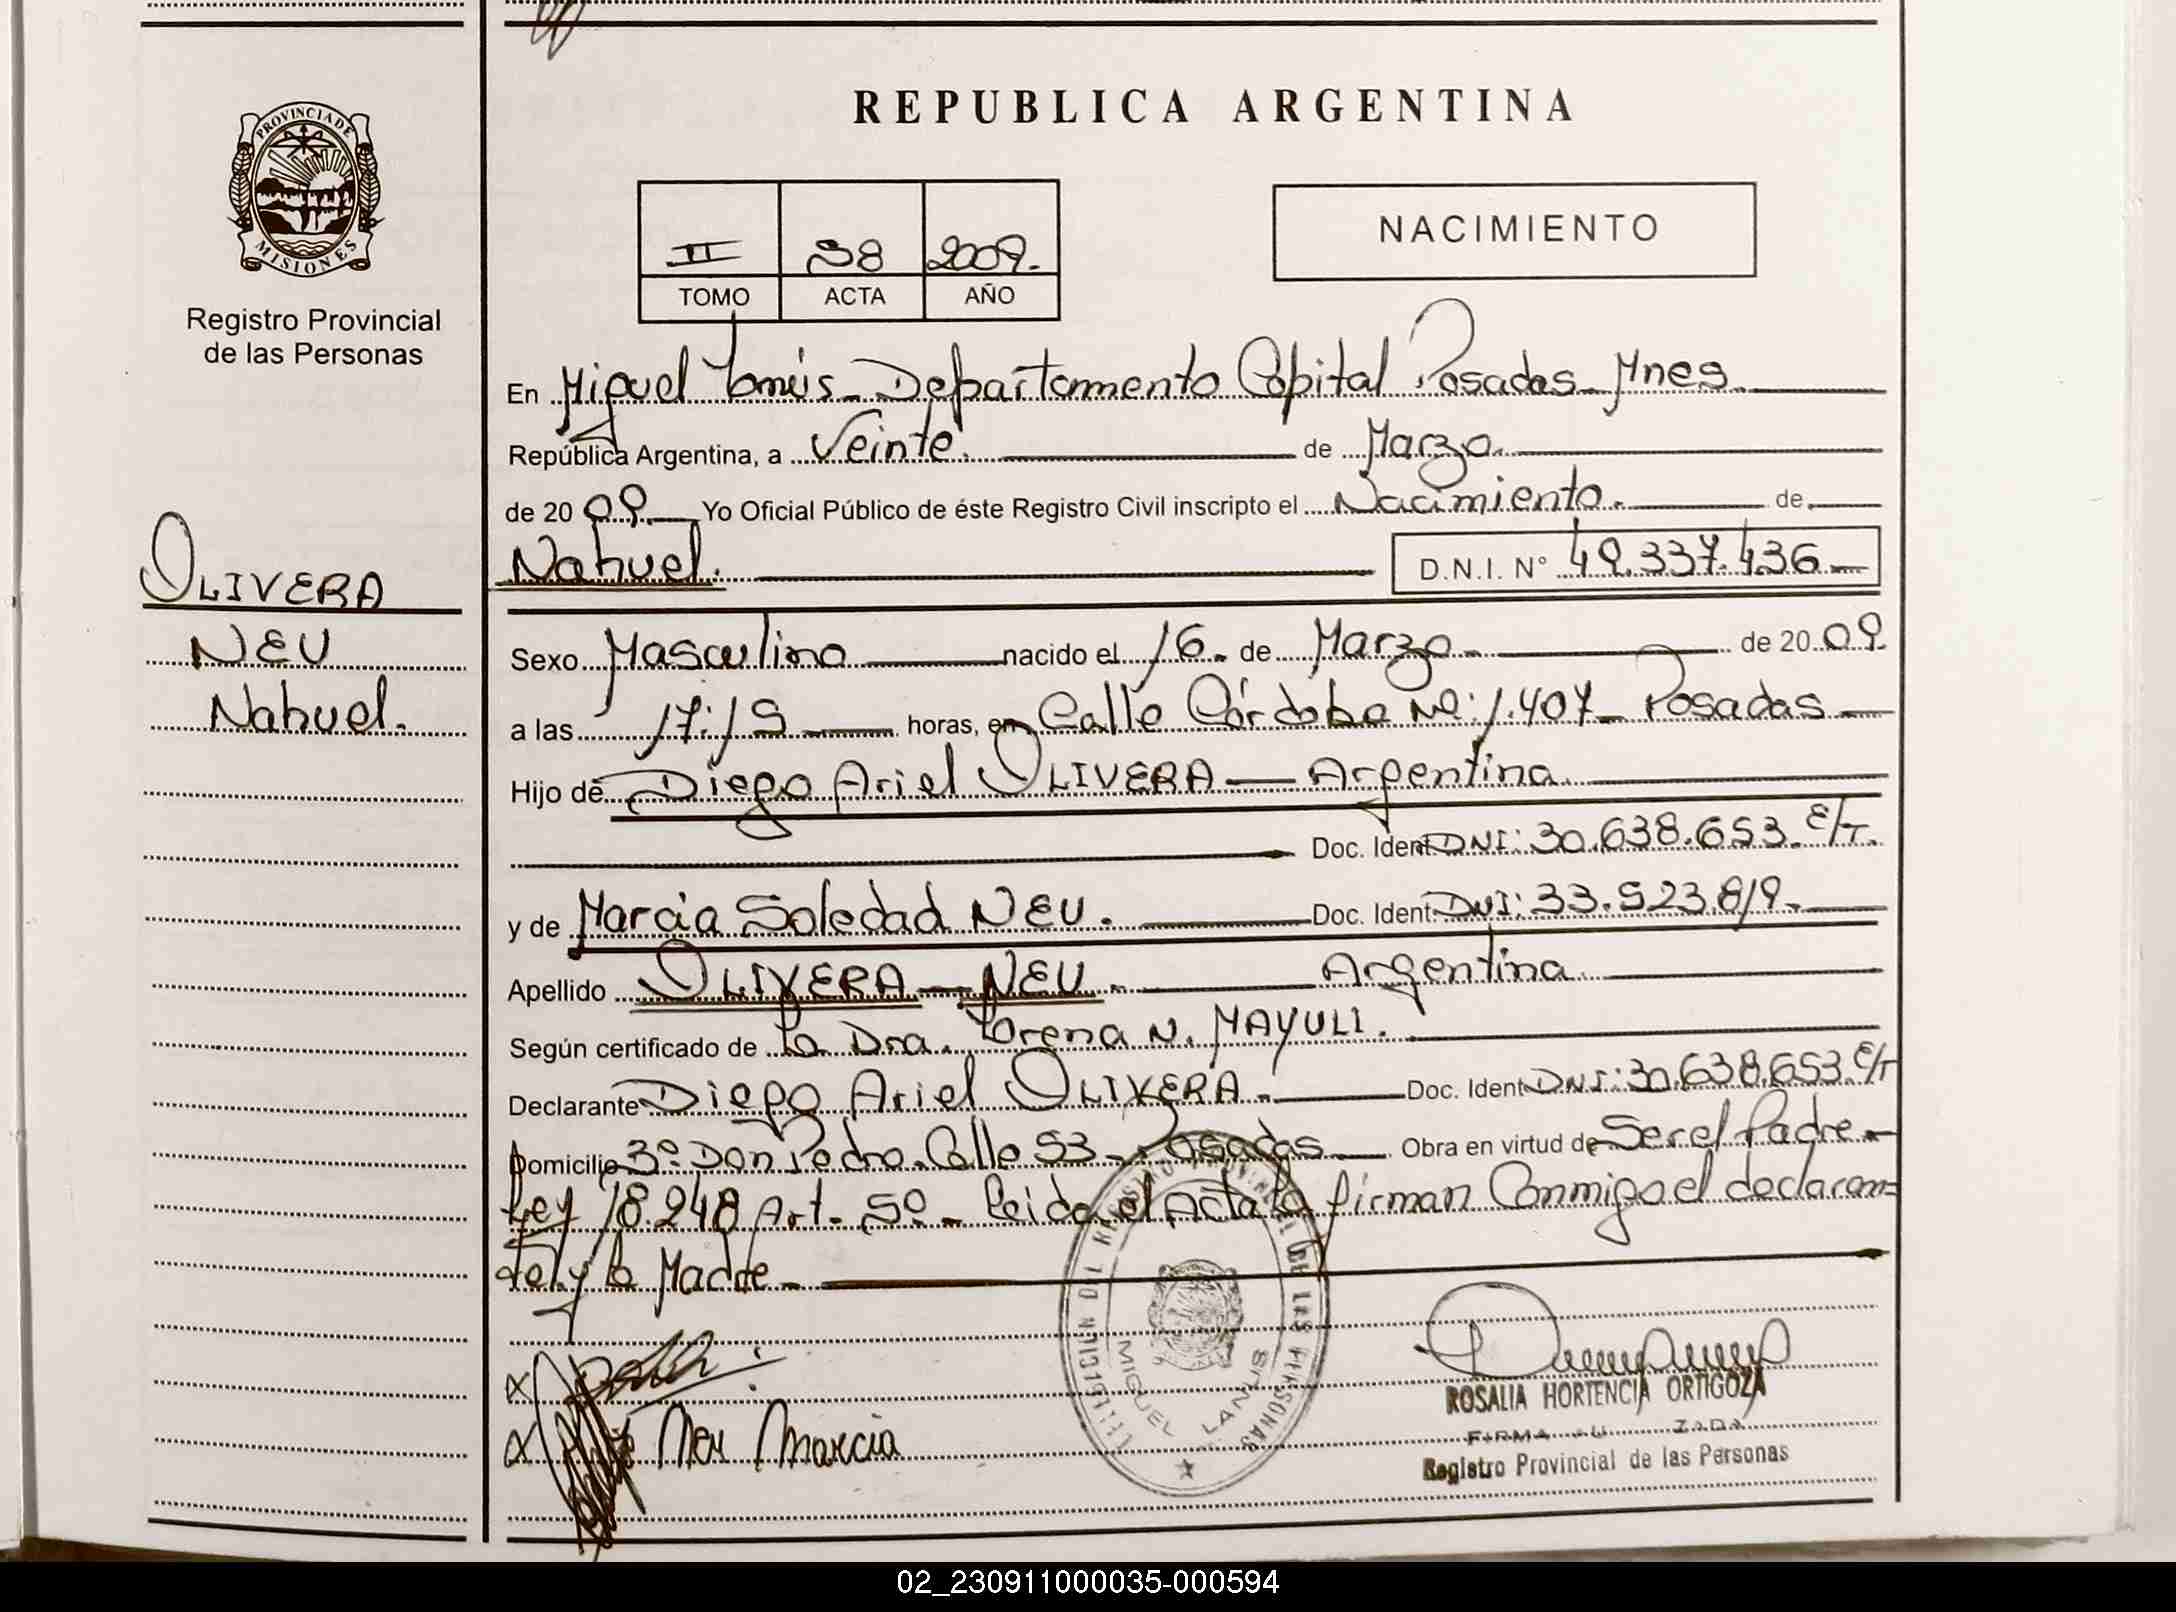 REPUBLICA ARGENTINA
PROVINCIA DE
MISIONES
Registro Provincial
de las Personas
II S8 2009.
TOMO ACTA AÑO
NACIMIENTO
En Miguel Lanús - Departamento Capital Posadas - Mnes.
República Argentina, a Veinte. de Marzo.
de 20 09. Yo Oficial Público de éste Registro Civil inscripto el Nacimiento. de
Nahuel. D.N.I. Nº 49.337.436
OLIVERA
NEU
Nahuel.
Sexo Masculino nacido el 16. de Marzo de 20 09.
a las 17:15 horas, en Calle Córdoba Nº: 1.407 - Posadas
Hijo de Diego Ariel OLIVERA — Argentina.
Doc. Ident DNI: 30.638.653. E/T.
y de Marcia Soledad NEU. Doc. Ident: DNI: 33.523.819.
Apellido OLIVERA - NEU. Argentina
Según certificado de La Dra. Lorena N. MAYULI.
Declarante Diego Ariel OLIVERA. Doc. Ident DNI: 30.638.653. E/T
Domicilio Bº. Don Pedro. Calle 53 - Posadas Obra en virtud de Ser el Padre.
Ley 18.248 Art. 5º - Leida el Acta la firman Conmigo el declaran=
te y la Madre -
MIGUEL LANUS
Neu Marcia
ROSALIA HORTENCIA ORTIGOZA
Registro Provincial de las Personas
02_230911000035-000594